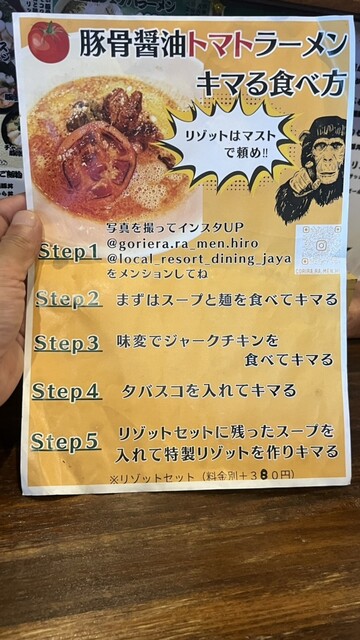 豚骨醤油トマトラーメン
キマる食べ方
リゾットはマスト
で頼め!!
写真を撮ってインスタUP
Step1
@goriera.ra_men.hiro
@local_resort_dining_jaya
をメンションしてね
Step2 まずはスープと麺を食べてキマる
Step3 味変でジャークチキンを
食べてキマる
Step4 タバスコを入れてキマる
Step5 リゾットセットに残ったスープを
入れて特製リゾットを作りキマる
※リゾットセット(料金別+380円)